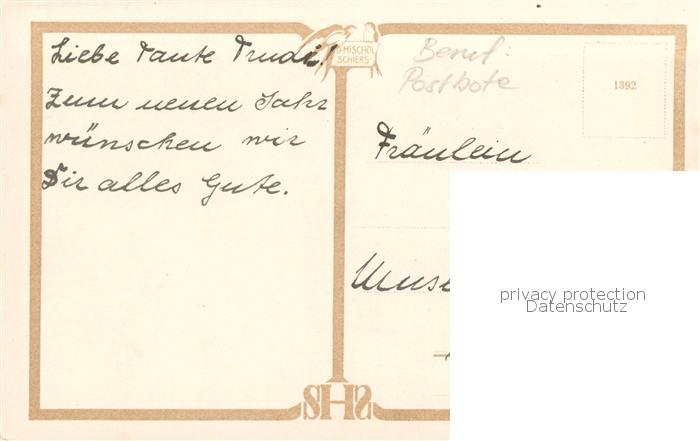 Liebe Tante Trudi!
Zum neuen Jahr
wünschen wir
Dir alles Gute.
D. MISCHOL
SCHIERS
Beruf:
Postbote
1392
Fräulein
privacy protection
Datenschutz
SHS